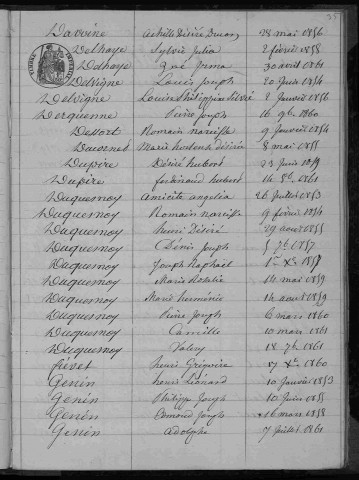 Davoine achille Désiré Ducas 28 mai 1856
Delhaye Sylvie Julia 2 février 1858
Delhaye Irma 30 avril 1861
Delvigne Louis Joseph 20 Juin 1854
Delvigne Louise Philippine 2 Janvier 1856
Derquenne Pierre Joseph 16 9bre 1860
Dessort Romain narcisse 9 Janvier 1854
Marie hubert Désirée 8 mai 1855
Dupire Désiré hubert 23 Juin
Dupire ferdinand hubert 14 8bre 1861
Duquesnoy Amicite angelia 26 Juillet 1853
Duquesnoy Romain narcisse 9 février 1854
Duquesnoy henri Désiré 29 aout 1855
Duquesnoy Dénis Joseph 5 7bre 1857
Duquesnoy Joseph Raphaël 1er Xbre 1857
Duquesnoy Marie Rosalie 14 mai 1859
Duquesnoy Marie herminie 14 aout 1859
Duquesnoy Pierre Joseph 6 mars 1860
Duquesnoy Camille 10 mars 1861
Duquesnoy Valery 18 7bre 1861
fiévet henri Grégoire 17 Xbre 1860
Genin henri Léonard 10 Janvier 1853
Genin Philippe Joseph 10 Juin 1855
Genin Edmond Joseph 16 mars 1858
Genin adolphe 7 Juillet 1861